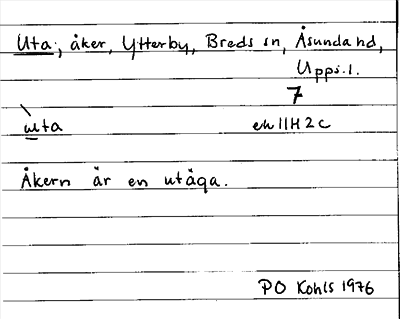 Uta, åker, Ytterby, Breds sn, Åsunda hd,
Upps. l.
7
ùta ek 11H2c
Åkern är en utäga.
PO Kohls 1976